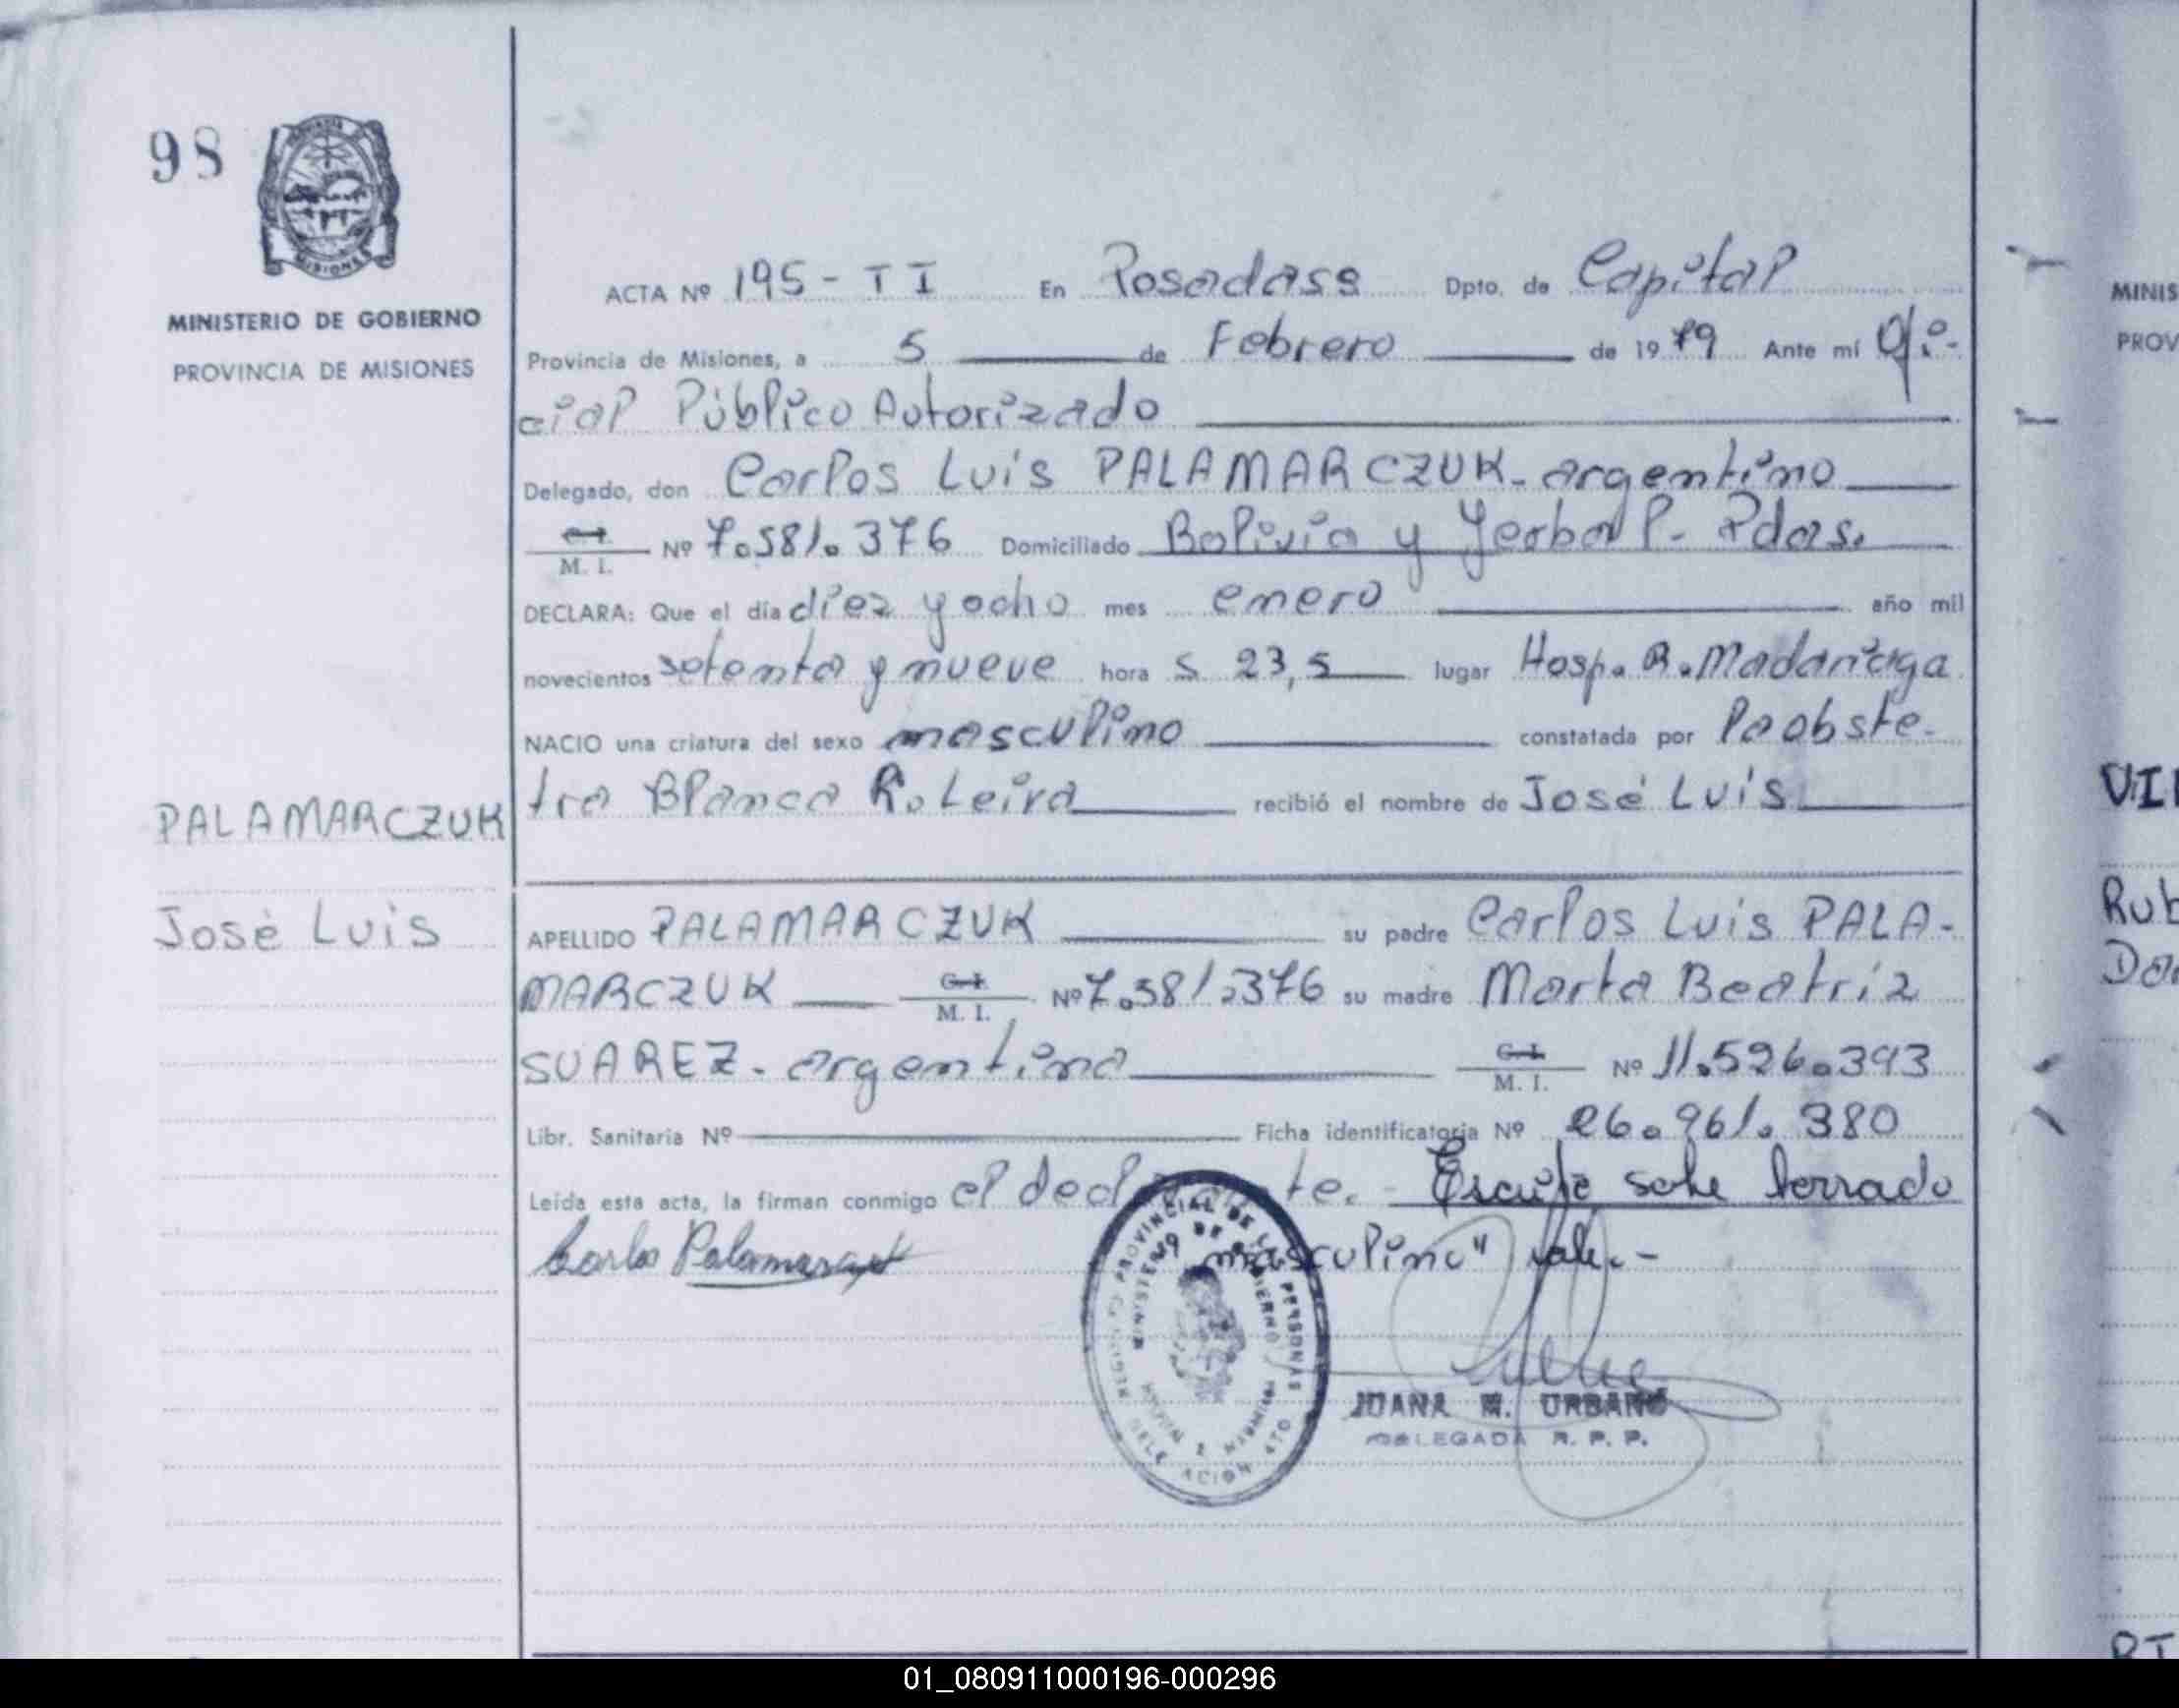 98
MISIONES
MINISTERIO DE GOBIERNO
PROVINCIA DE MISIONES
PALAMARCZUK
José Luis
ACTA Nº 195 - T I En Posadass Dpto. de Capital
Provincia de Misiones, a 5 de Febrero de 1979 Ante mí Ofi-
cial Público Autorizado
Delegado, don Carlos Luis PALAMARCZUK - argentino
C. I.
M. I. Nº 7.581.376 Domiciliado Bolivia y Yerbal P. Pdas.
DECLARA: Que el día diez y ocho mes enero año mil
novecientos setenta y nueve hora s 23,5 lugar Hosp. R. Madariaga
NACIO una criatura del sexo masculino constatada por la obste-
tra Blanca R. Leiva recibió el nombre de José Luis
APELLIDO PALAMARCZUK su padre Carlos Luis PALA-
MARCZUK C. I.
M. I. Nº 7.581.376 su madre Marta Beatriz
SUAREZ - argentina C. I.
M. I. Nº 11.526.393
Libr. Sanitaria Nº Ficha identificatoria Nº 26.961.380
Leída esta acta, la firman conmigo el declarante. - Escrito sobre borrado
Carlos Palamarczuk "masculino" vale. -
PROVINCIAL DE LAS PERSONAS
MINISTERIO DE GOBIERNO
DELEGACION 4TO
JUANA M. URBANO
DELEGADA R. P. P.
MINIS
PROV
VIL
Rub
Da
01_080911000196-000296